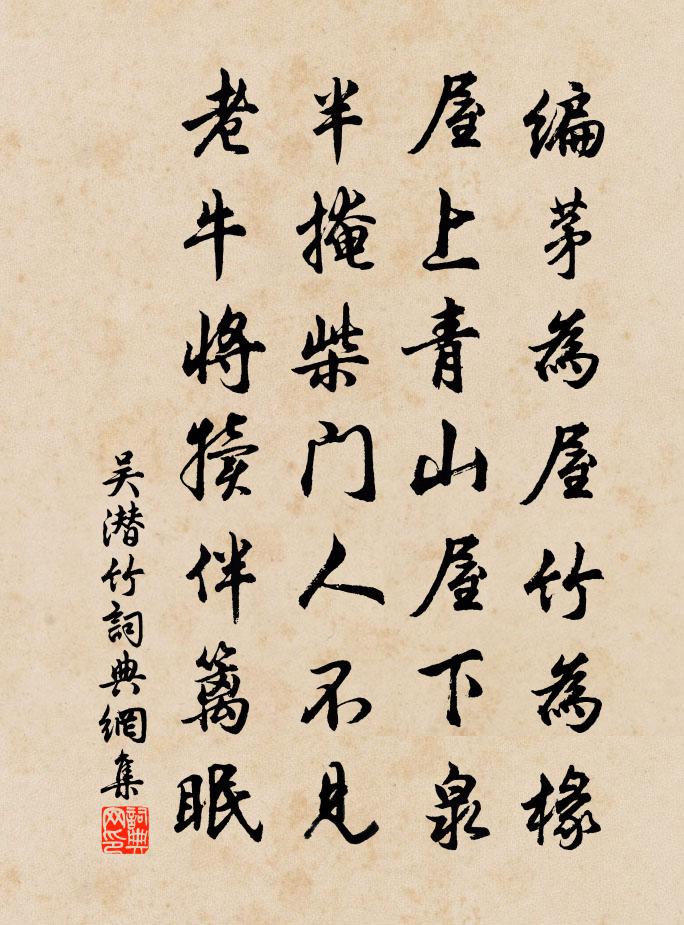 编茅為屋竹為椽
屋上青山屋下泉
半掩柴门人不见
老牛将犊伴篱眠
吴潜竹詞典網集
詞典网印